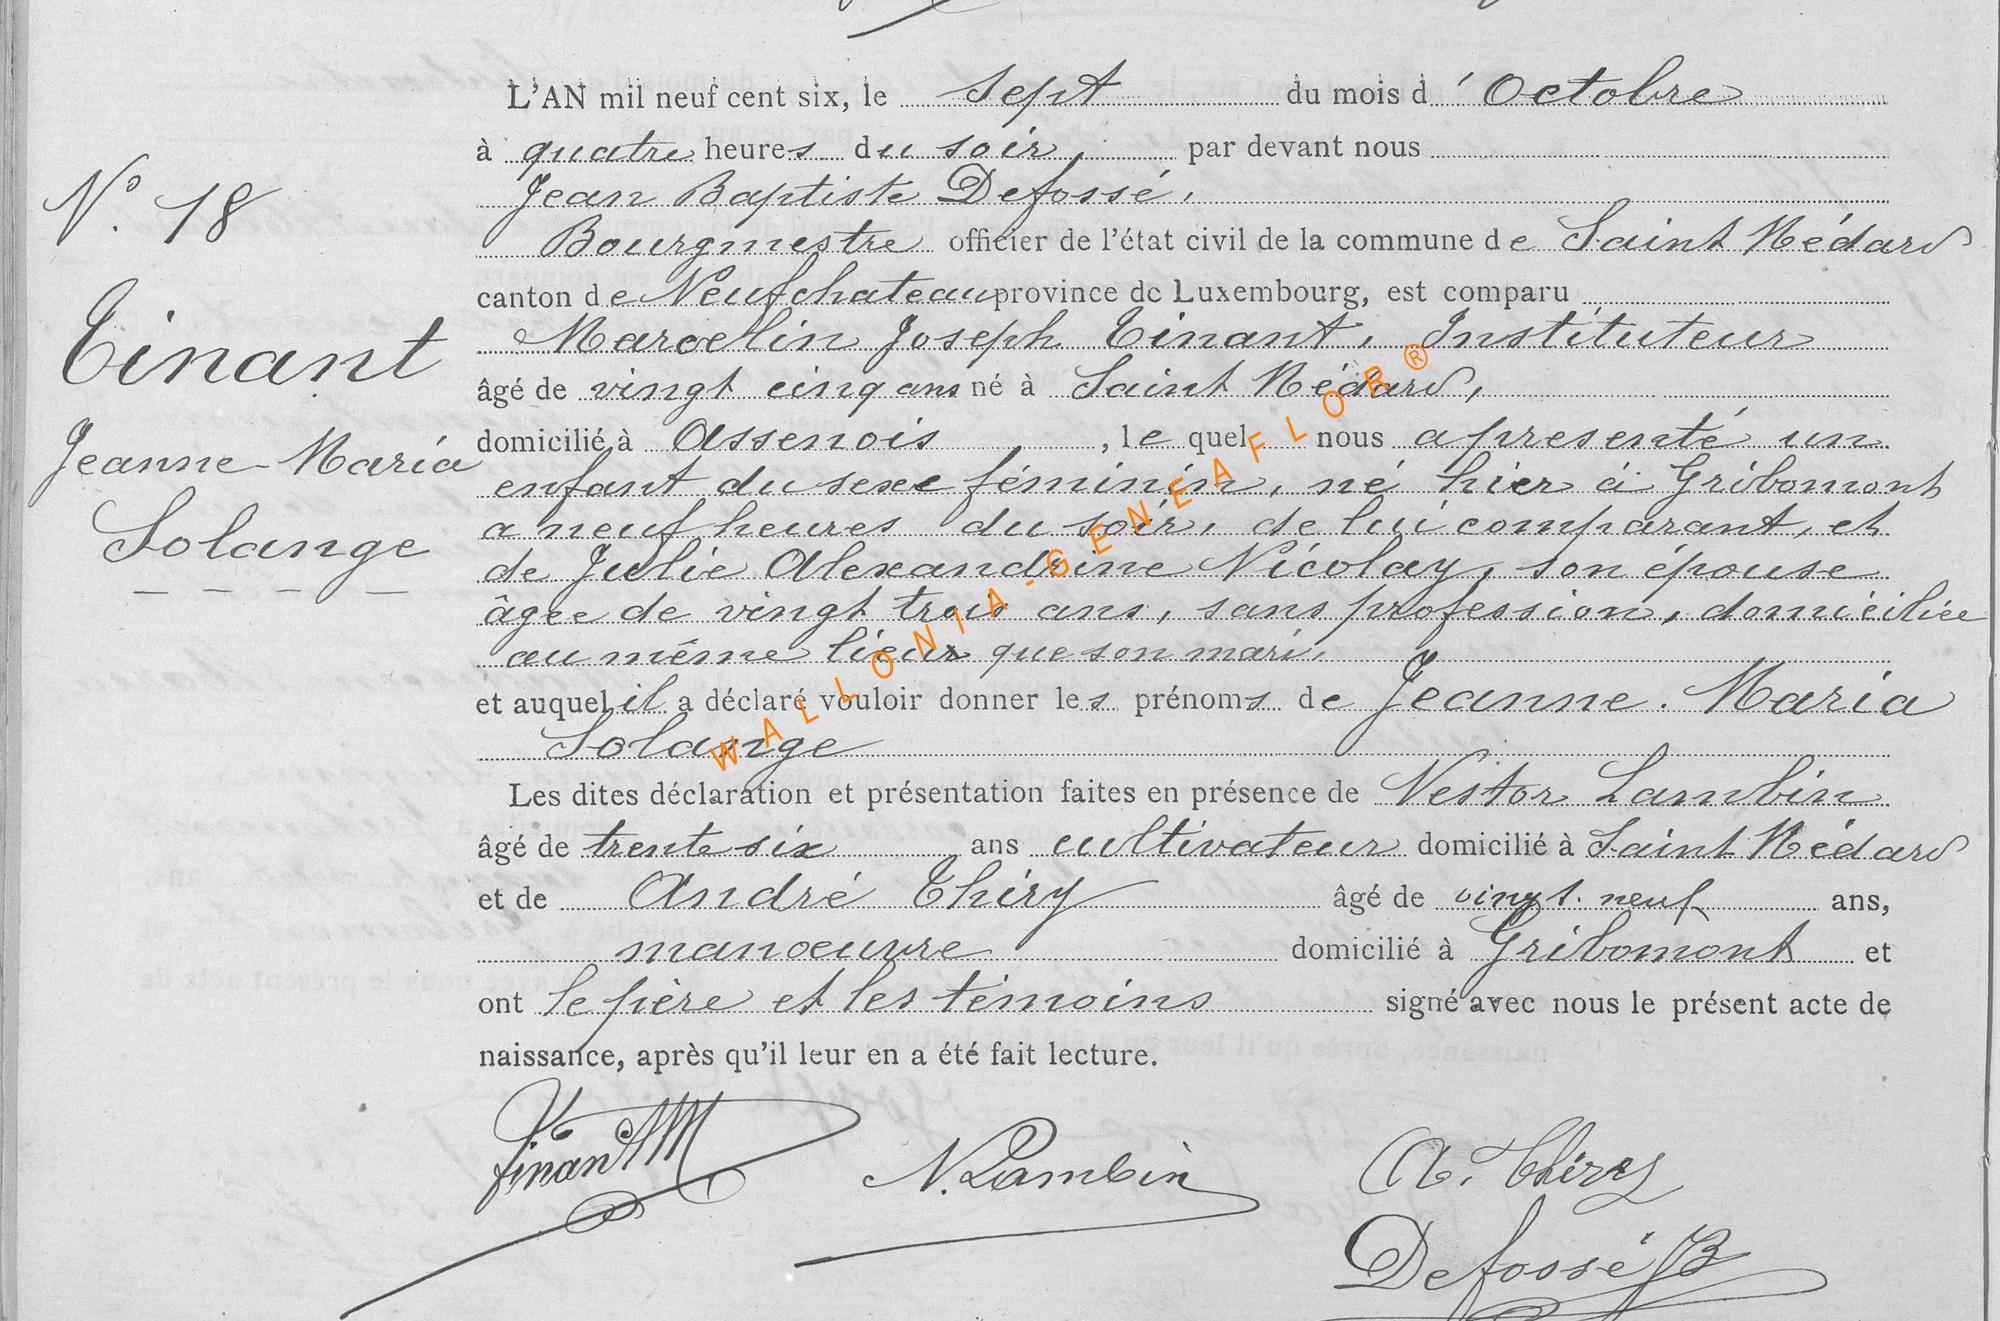 L'AN mil neuf cent six, le sept du mois d'Octobre
à quatre heures du soir, par devant nous
Jean Baptiste Defossé,
Bourgmestre officier de l'état civil de la commune de Saint Médard
canton de Neufchateau province de Luxembourg, est comparu
Marcelin Joseph Tinant, Instituteur
âgé de vingt cinq ans né à Saint Médard,
domicilié à Assenois, le quel nous a presenté un
enfant du sexe féminin, né hier à Gribomont
a neuf heures du soir, de lui comparant, et
de Julie Alexandrine Nicolay, son épouse
âgée de vingt trois ans, sans profession, domiciliée
au même lieux que son mari,
et auquel il a déclaré vouloir donner les prénoms de Jeanne. Maria
Solange
Les dites déclaration et présentation faites en présence de Nestor Lambin
âgé de trente six ans cultivateur domicilié à Saint Médard
et de André Thiry âgé de vingt. neuf ans,
manœuvre domicilié à Gribomont et
ont le père et les témoins signé avec nous le présent acte de
naissance, après qu'il leur en a été fait lecture.
N° 18
Tinant
Jeanne-Maria
Solange
Tinant M
N. Lambin
A. Thiry
Defossé JB
WALLONIA-GENEAFLOR®